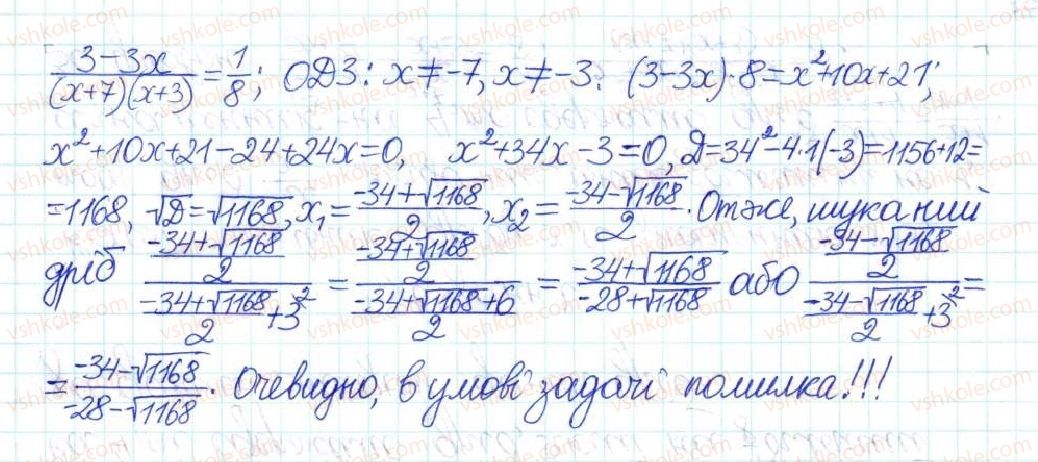 (3-3x)/((x+7)(x+3)) = 1/8; ОДЗ: x≠-7, x≠-3. (3-3x)·8=x²+10x+21;
x²+10x+21-24+24x=0, x²+34x-3=0, Д=34²-4·1(-3)=1156+12=
=1168, √Д=√1168, x₁=(-34+√1168)/2, x₂=(-34-√1168)/2. Отже, шуканий
дріб ((-34+√1168)/2)/((-34+√1168)/2+3) = ((-34+√1168)/2)/((-34+√1168+6)/2) = (-34+√1168)/(-28+√1168) або ((-34-√1168)/2)/((-34-√1168)/2+3) =
= (-34-√1168)/(-28-√1168). Очевидно, в умові задачі помилка!!!
vshkole.com